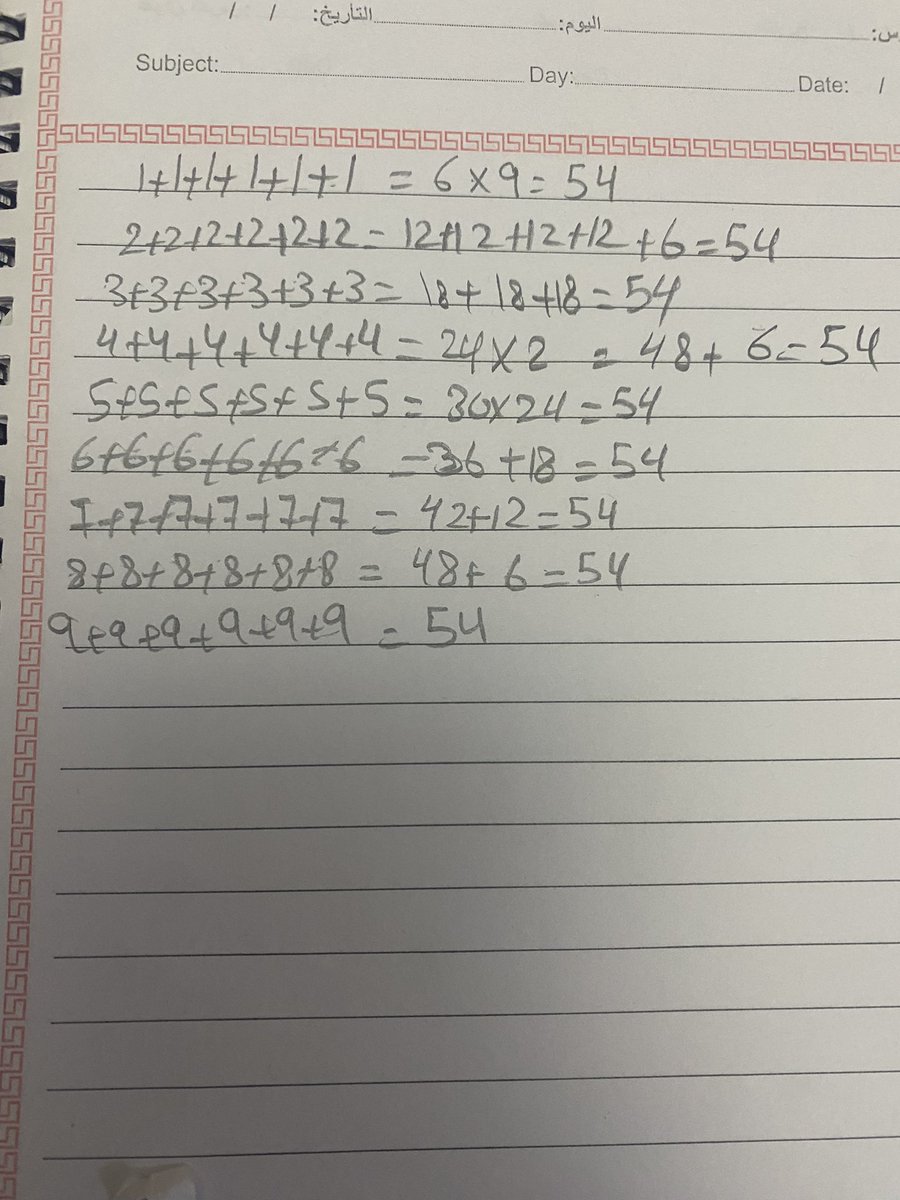 التاريخ: / / اليوم: س:
Subject: Day: Date: /
1+1+1+1+1+1 = 6×9=54
2+2+2+2+2+2=12+12+12+12+6=54
3+3+3+3+3+3=18+18+18=54
4+4+4+4+4+4=24×2=48+6=54
5+5+5+5+5+5=30×24=54
6+6+6+6+6+6=36+18=54
7+7+7+7+7+7=42+12=54
8+8+8+8+8+8=48+6=54
9+9+9+9+9+9=54